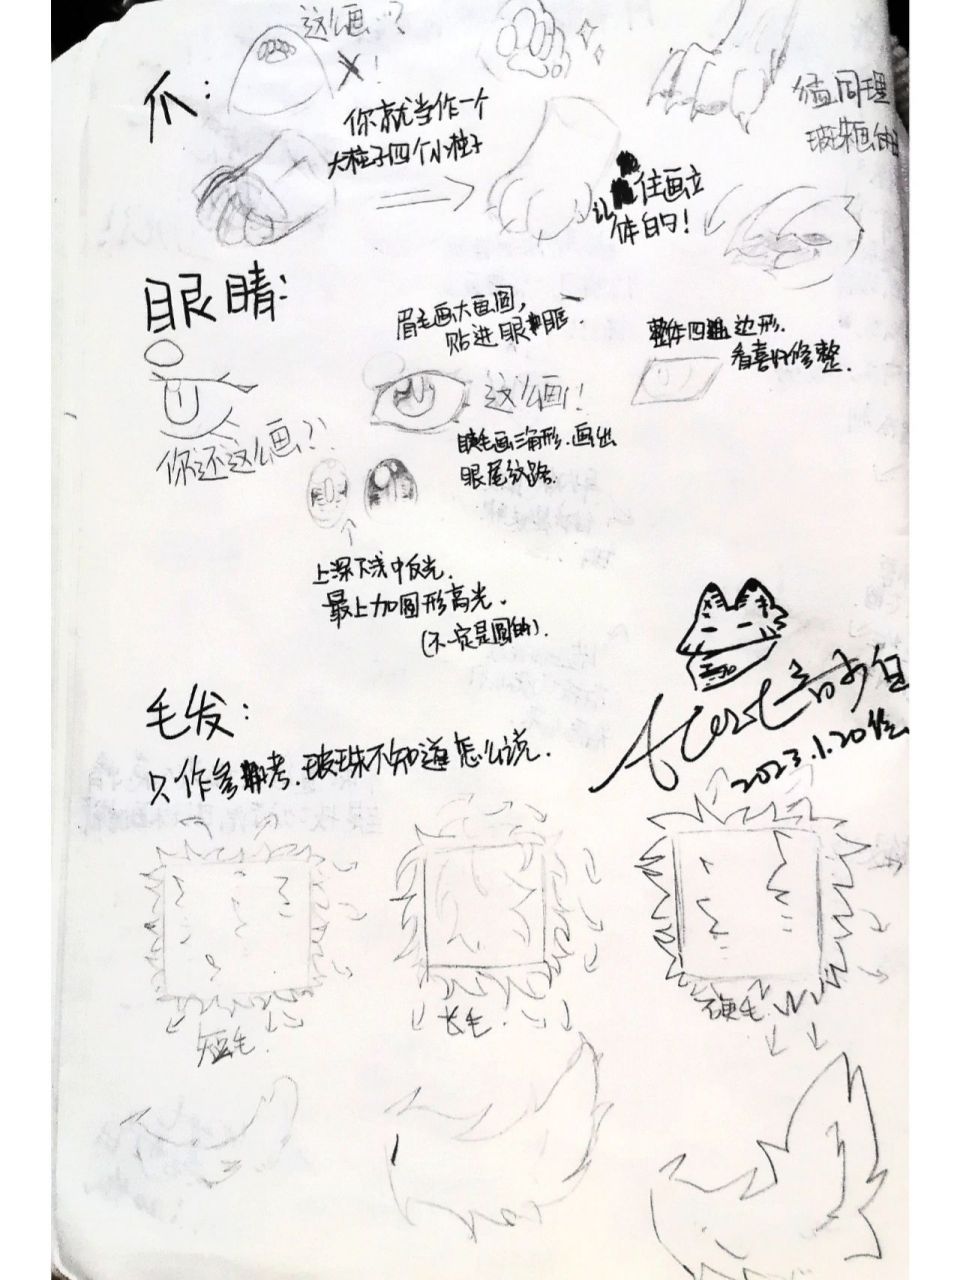 这么画…?
爪:
你就当作一个
大柱子四个小柱子
同理
住画立
体的!
眼睛:
眉毛画大直圆,
贴进眼眶
整体四边形.
看喜好修整.
这么画!
你还这么画?!
睫毛画三角形.画出
眼尾纹路.
上深下浅中反光.
最上加圆形高光.
(不一定是圆的).
毛发:
只作参考.玻珠不知道怎么说.
2023.1.20绘
短毛.
长毛.
硬毛.